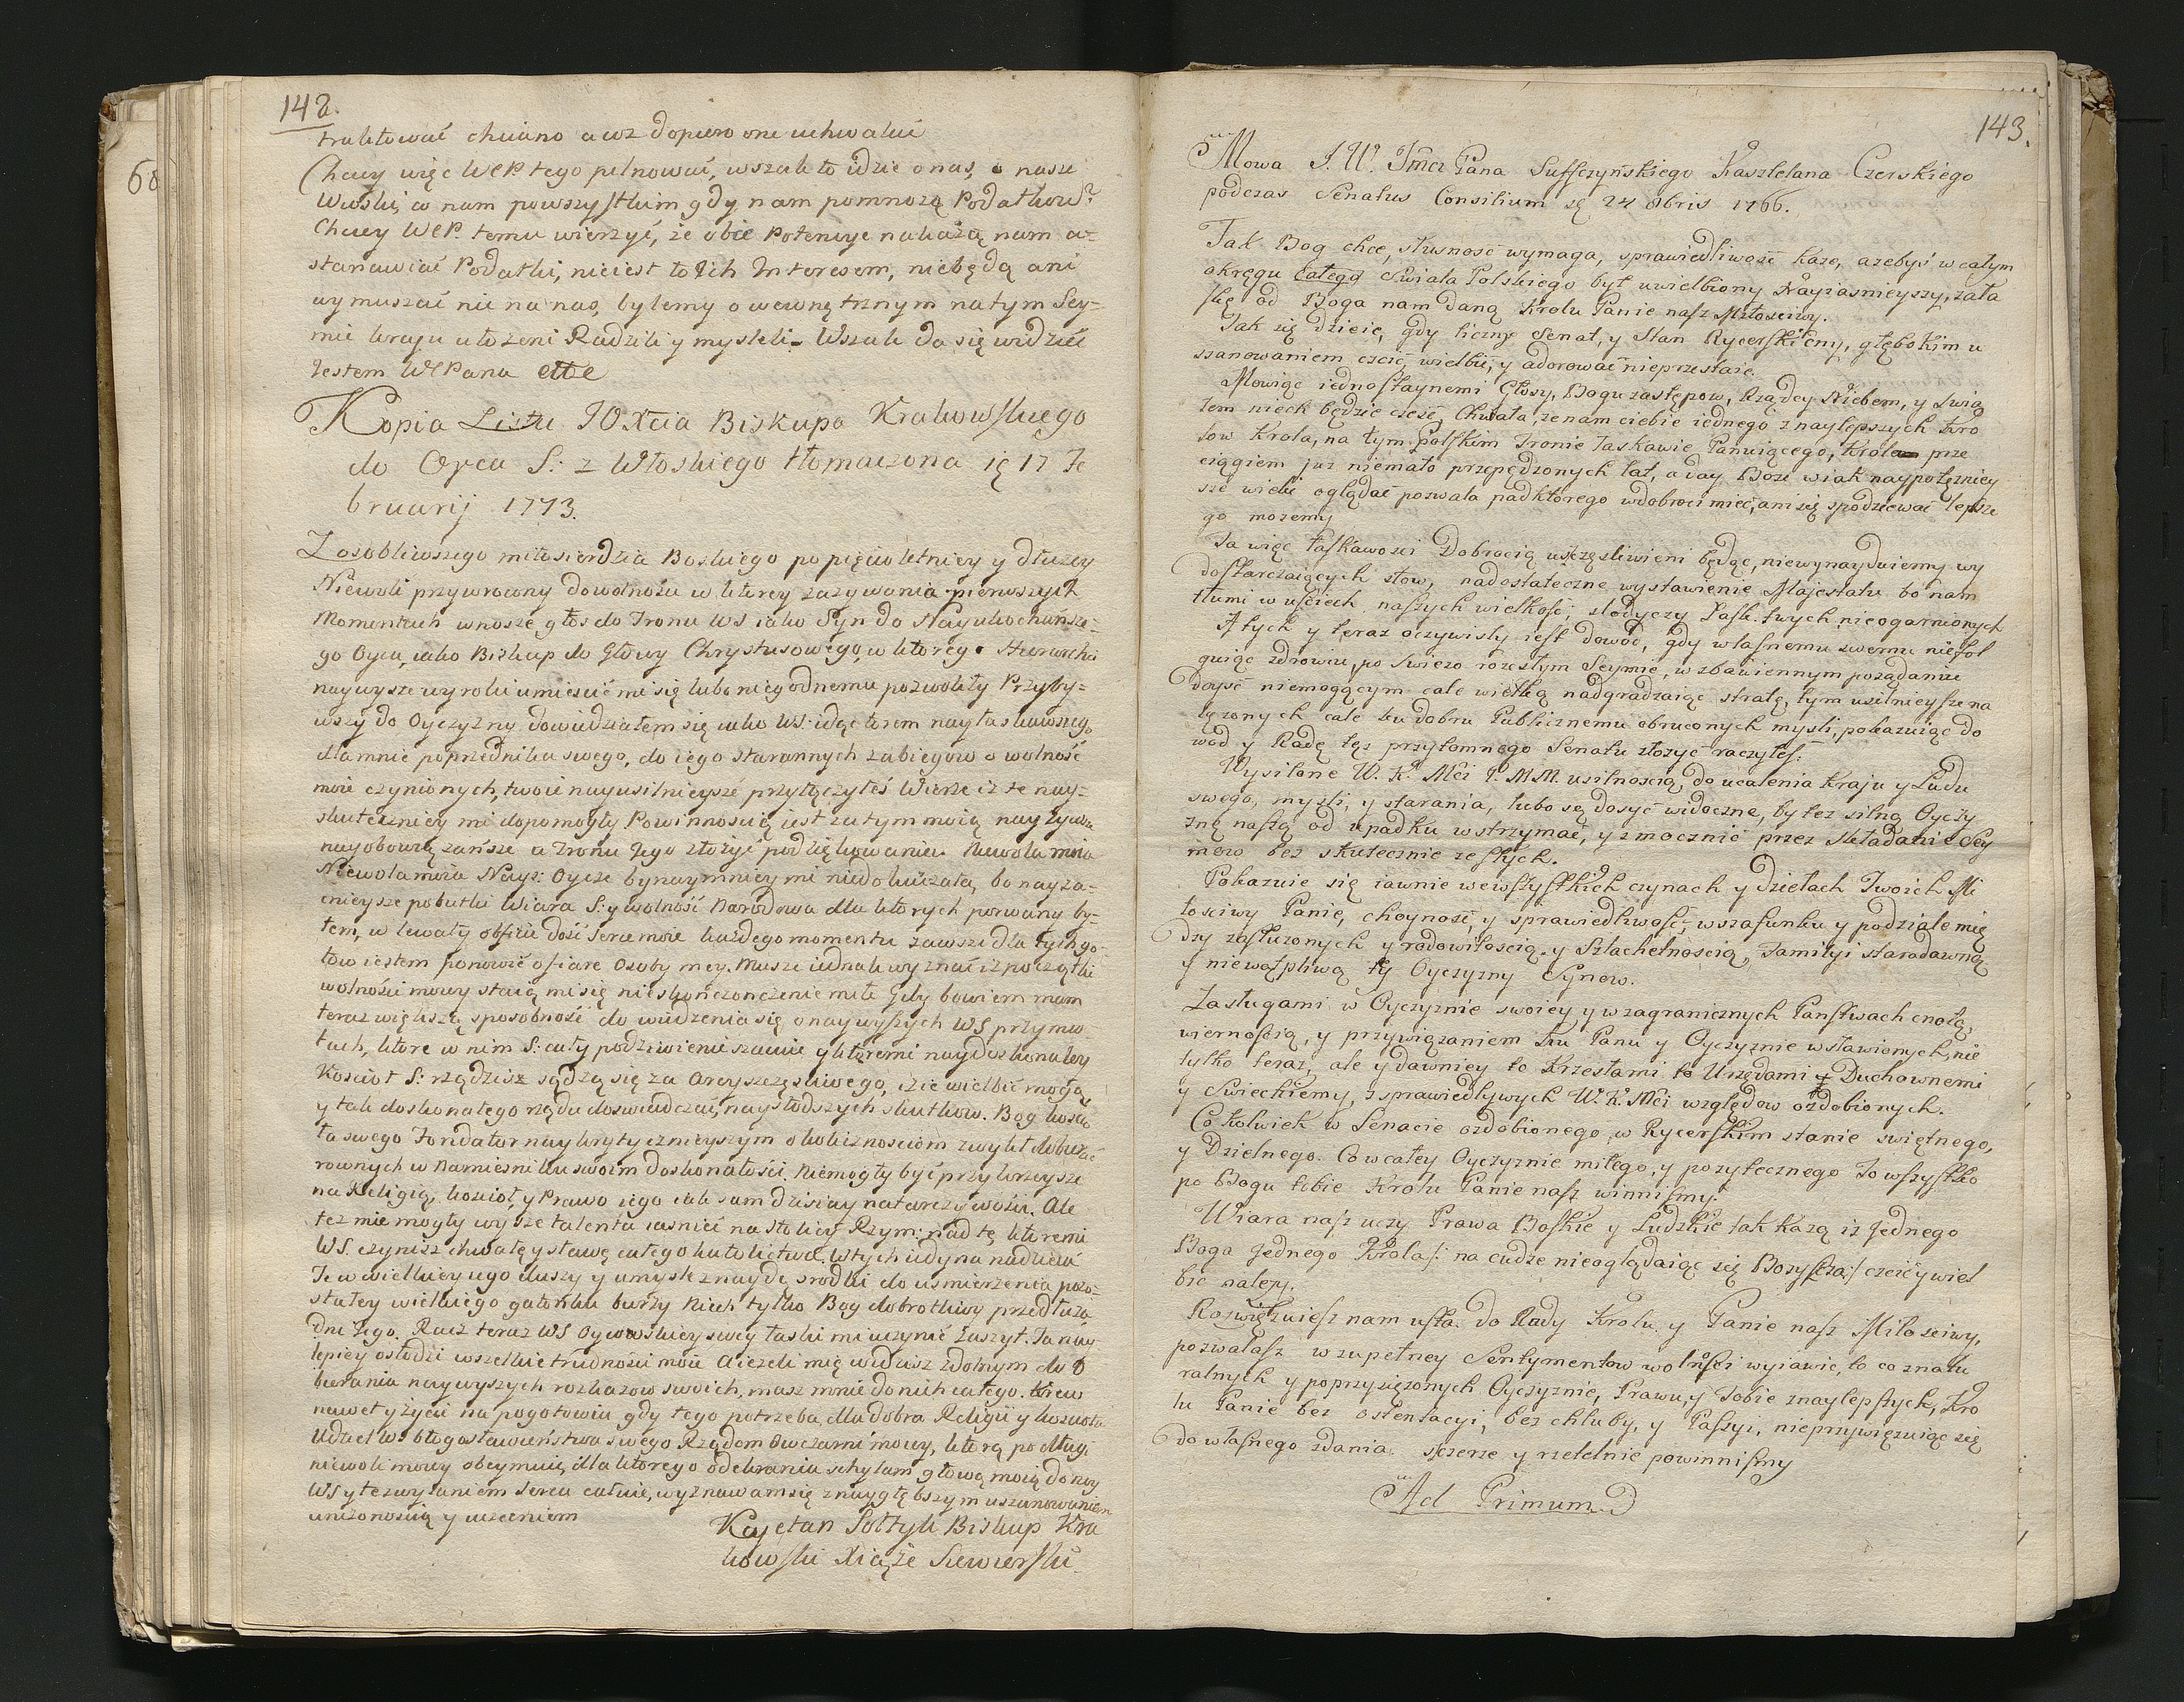 142.
traktować chciano a wz dopiero one uchwalić
Chciey więc WCP tego pilnować, wszak to idzie o nas, o nasze
Wioski, co nam powszystkim gdy nam pomnożą Podatkow?
Chciey WCP. temu wierzyć, że obie Potencye nakażą nam u=
stanawiać Podatki, nie iest to Ich Interesem, niebędą ani
wymuszać nic na nas, bylemy o wewnętrznym na tym Sey=
mie kraju ułożeni Radzili y mysleli. Wszak da się widzieć
Jestem WPana ettc
Kopia Listu JOXcia Biskupa Krakowskiego
do Oyca S: z Włoskiego tłomaczona 17 Fe
bruarij 1773.
Z osobliwszego miłosierdzia Boskiego po pięcioletniey y dłuzey
Niewoli przywrocony do wolności w ktorey zazywania pierwszych
Momentach wnoszę głos do Tronu WS iako Syn do Nayukochańsze=
go Oyca, iako Biskup do Głowy Chrystusowego, w ktorego Hierarchii
naywyzsze wyroki umiescić mi się lubo niegodnemu pozwoliły Przyby=
wszy do Oyczyzny dowiedziałem się iako WS. idąc torem nayłaskawszego
dla mnie poprzednika swego, do iego starannych zabiegow o wolność
moie czynionych, twoie nayusilnieysze przyłączyłeś Wierze iz te nay=
skuteczniey mi dopomogły Powinnością iest zatym moią nayzywsze
nayobowiązańsze u Tronu Jego złożyć podziękowanie. Niewola moia
Niewola moia Nays: Oycze bynaymniey mi niedokuczała, bo nayza=
cnieysze pobutki Wiara S: y wolność Narodowa dla ktorych porwany by=
łem, wlewały obficie dość serce moie kazdego momentu zawsze dla tych go=
tow iestem ponowić ofiare Osoby mey. Musze iednak wyznać iz początki
wolności mowy staią mi się nieskończończenie miłe Gdy bowiem mam
teraz większą sposobność do widzenia się o naywyższych WS przymio
tach, ktore w nim S: cały podziwienie szacuie y ktoremi naydoskonaley
Kościoł S: rządzisz sądzą się za Arcyszczęsliwego, iz ie wielbić mogą,
y tak doskonałego rządu doswiadczać naysłodszych skutkow. Bog kościo
ła swego Fondator naykrytycznieyszym okolicznosciom zwykł dobierać
rownych w Namiesniku swoim doskonałości. Niemogły być przykrzeysze
na Religią, kościoł, y Prawo iego iak sam dzisiay natarczywości. Ale
tez nie mogły wyzsze talenta iasnieć na stolicy Rzym: nad te, ktoremi
WS. czynisz chwałę y sławę całego katolictwa. W tych iedyna nadzieia
Ze w wielkiey iego duszy y umysle znaydę srodki do usmierzenia pozo=
stałey wielkiego gatonku burzy Niech tylko Bog dobrotliwy przedłuza
dni Jego. Racz teraz WS Oycowskiey swey łaski mi uczynić zaszyt. Ta nay
lepiey osłodzi wszelkie trudności moie A iezeli mię widzisz zdolnym do O
bierania naywyszych rozkazow swoich, masz mnie do nich całego. Krew
nawet y życie na pogotowiu gdy tego potrzeba dla dobra Religii y kościoła
Udziel WS błogosławieństwa swego Rządom Owczarni mowy, ktorą po długi
niewoli mowy obeymuię, dla ktorego odebrania schylam głowę moią do nog
WS y te z wylaniem serca całuie, wyznawam się z naygłębszym uszanowaniem
uniżonością y uczciem
Kayetan Sołtyk Biskup Kra
kowski Xiąże Siewierski

143.
Mowa J. W. Jmci Pana Suffczyńskiego Kasztelana Czerskiego
podczas Senatus Consilium 24 8bris 1766.
Jak Bog chce, słusność wymaga, sprawiedliwość kaze, azebyś w całym
okręgu całego Swiata Polskiego był uwielbiony Nayiasnieyszy, zała
skę od Boga nam daną Krolu Panie nasz Miłosciwy.
Jak się dzieie, gdy liczny Senat, y Stan Rycerski cny, głębokim u
szanowaniem czcić, wielbić, y adorować nieprzestaie.
Mowiąc iednostaynemi Głosy, Bogu zastępow, Rządcy Niebem, y Swia
tem niech będzie cześć, Chwała, ze nam ciebie iednego znaylepszych Kro
low Krola, na tym Polskim Tronie łaskawie Panuiącego, Krola prze
ciągiem juz niemało przepędzonych lat, a day Boze wiak naypotężniey
sze wieki oglądać pozwala nadktorego wdobroci mieć, ani się spodziewać lepsze
go mozemy
Ta więc łaskawosci Dobrocią uszczęsliwieni będąc, niewynayduiemy wy
dostarczaiących słow, nadostateczne wystawienie Majestatu bo nam
tłumi w uściech naszych wielkość, slodyczy Łask twych nieogarnionych
Z tych y teraz oczywisty iest dowod, gdy własnemu swemu niefol
guiąc zdrowiu, po swiezo rozeszłym Seymie, w zbawiennym pożądaniu
doyść niemogącym cale wielką nadgradzaiąc stratę, tym usilnieysze na
tęzonych cale ku dobru Publicznemu obruconych mysli, pokazuiąc do
wod y Radę tęz przytomnego Senatu złozyć raczyłeś.
Wysilone W. K. Mci P. M M. usilnoscią do ucalenia Kraju y Ludu
swego, mysli, y starania, lubo są dosyć widoczne, by tez silną Oyczy
znę naszą od upadku wstrzymać, y zmocnić przez składanie Sey
mow bez skutecznie zeszłych.
Pokazuie się iawnie wewszystkich czynach y dziełach Twoich Mi
łosciwy Panie, choyność, y sprawiedliwość, wszafunku y podziale mię
dzy zasłuzonych y radowitoscią y Szlachetnoscią, Familyi staradawną
y niewątpliwą tey Oyczyzny Synow.
Zasługami w Oyczyznie swoiey y wzagranicznych Państwach cnotą,
wiernością, y przywiązaniem ku Panu y Oyczyznie wsławionych, nie
tylko teraz, ale y dawniey to Krzesłami to Urzędami Duchownemi
y Swieckiemy, z sprawiedlywych W. K. Mci względow ozdobionych.
Cokolwiek w Senacie ozdobionego, w Rycerskim stanie swiętnego,
y Dzielnego. Co wcałey Oyczyznie miłego, y pozytecznego To wszystko
po Bogu tobie Krolu Panie nasz winnismy.
Wiara nas uczy Prawa Boskie y Ludzkie tak kazą iz Jednego
Boga Jednego Krola /: na cudze nieoglądaiąc się Bosyscza :/ czcić y wiel
bić nalezy.
Rozwięzuiesz nam usta do Rady Krolu y Panie nasz Miłosciwy,
pozwalasz w zupełney Sentymentow wolności wyiawić, to co znatu
ralnych y poprzysięzonych Oyczyznie, Prawu, y Tobie znaylepszych, Kro
lu Panie bez ostentacyi, bez chluby, y Passyi, nieprzywięzuiąc się
do własnego zdania szczerze y rzetelnie powinnismy
Ad Primum